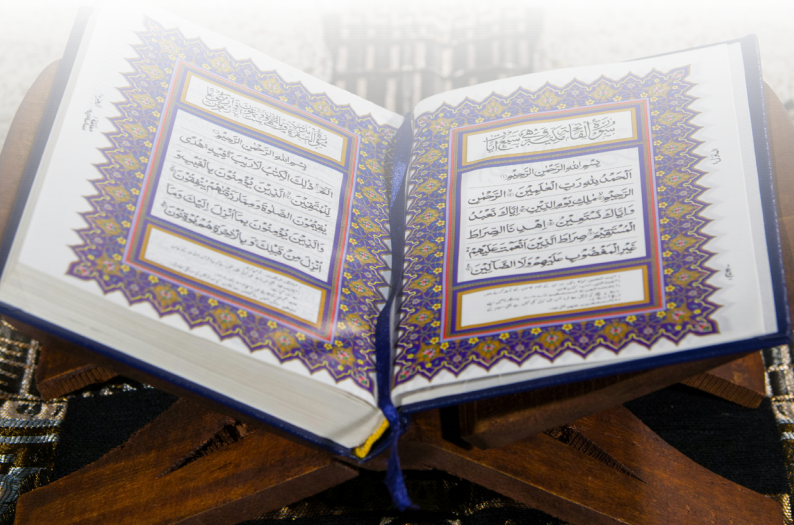 سُوْرَةُ الْفَاتِحَةِ
بِسْمِ اللّٰهِ الرَّحْمٰنِ الرَّحِيْمِ
اَلْحَمْدُ لِلّٰهِ رَبِّ الْعٰلَمِيْنَ الرَّحْمٰنِ
الرَّحِيْمِ مٰلِكِ يَوْمِ الدِّيْنِ اِيَّاكَ نَعْبُدُ
وَاِيَّاكَ نَسْتَعِيْنُ اِهْدِنَا الصِّرَاطَ
الْمُسْتَقِيْمَ صِرَاطَ الَّذِيْنَ اَنْعَمْتَ عَلَيْهِمْ
غَيْرِ الْمَغْضُوْبِ عَلَيْهِمْ وَلَا الضَّآلِّيْنَ
بِسْمِ اللّٰهِ الرَّحْمٰنِ الرَّحِيْمِ
الٓمّٓ ذٰلِكَ الْكِتٰبُ لَا رَيْبَ فِيْهِ هُدًى
لِّلْمُتَّقِيْنَ الَّذِيْنَ يُؤْمِنُوْنَ بِالْغَيْبِ وَ
يُقِيْمُوْنَ الصَّلٰوةَ وَمِمَّا رَزَقْنٰهُمْ يُنْفِقُوْنَ
وَالَّذِيْنَ يُؤْمِنُوْنَ بِمَآ اُنْزِلَ اِلَيْكَ وَمَآ
اُنْزِلَ مِنْ قَبْلِكَ وَبِالْاٰخِرَةِ هُمْ يُوْقِنُوْنَ